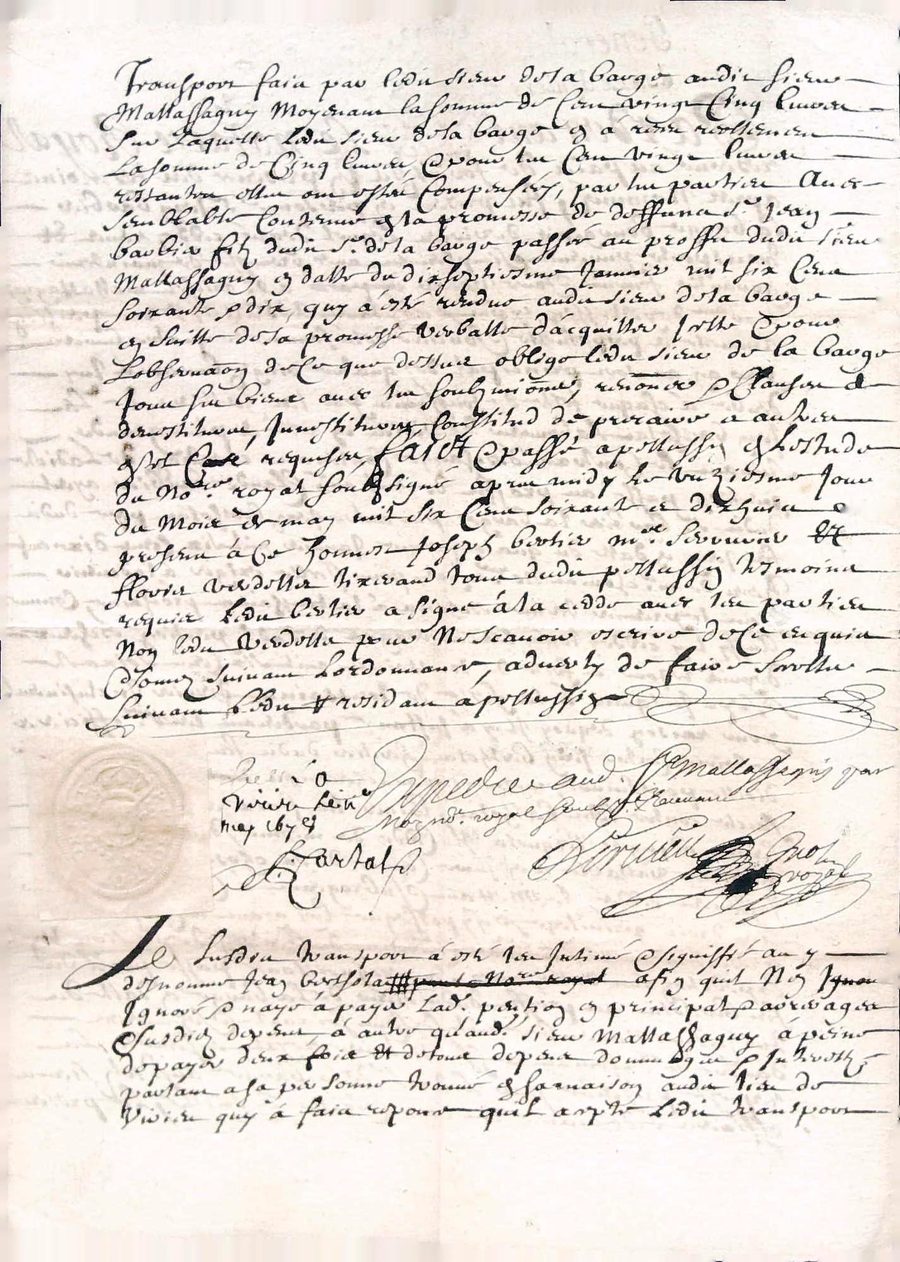 Transport faict par ledit sieur de la barge audit sieur
Mallassagny Moyenant la somme de Cent vingt Cinq livres
Sur Laquelle ledit sieur de la barge à reellement
La somme de Cinq livres, & pour les Cent vingt livres
restantes elles ont estté Compensées, par les parties Avec
semblable Contenue en la promesse de deffunct Sr. Jean
barbier filz dudit Sr. de la barge passée au proffit dudit sieur
Mallassagny en datte du dixseptiesme Janvier mil six Cent
Soixante & dix, quy à esté rendue audit sieur de la barge
en suitte de sa promesse verballe d'acquitter Icelle & pour
L'observaon de Ce que dessus oblige ledit sieur de la barge
Tous ses biens avec les soubzmiõns, renõnce & Clauses de
devestiture, Investiture, Constitud de precaire & autres
requises, faict & passé a pellussin en L'estude
du Nore. royal soubzsigné apres midy Le unziesme Jour
du Mois de may mil six Cent soixante et dixhuict
presens à Ce honneste Joseph bertier me. Serrurier Et
flovis verdelle tixerand tous dudit pellussin tesmoins
requis Ledit bertier a signé à la cedde avec les parties
Non ledit verdelle pour Ne scavoir escrire de Ce enquis
& somez suivant L'ordonnance, adverty de faire sceller
suivant L'edit & residans a pellussin
Scellé a
may 1678
Expedié aud. Sr Mallassagny par
moy nore. royal soubzsigné
Le susdit transport à esté leu Intimé & signiffié au y
desnommé Jean berthola afin quil N'en
Ignore & naye à payer Lad. pention en principal & arrerages
& susdicts depens, à autre quaud. sieur Mallassagny a peine
de payer deux fois Et de tous depens dommages & Interestz
parlant a sa personne trouvé en sa maison audit lieu de
Virieu quy à faict reponce quil accepte Ledit transport